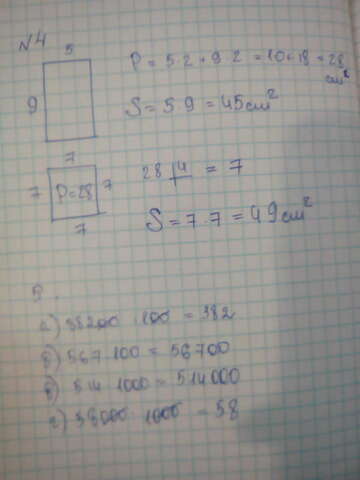 N4
5
9
P = 5·2 + 9·2 = 10 + 18 = 28 cm²
S = 5·9 = 45 cm²
7
7 P=28 7
7
28 4 = 7
S = 7·7 = 49 cm²
5.
а) 38200 : 100 = 382
б) 567·100 = 56700
в) 514·1000 = 514000
г) 58000 : 1000 = 58